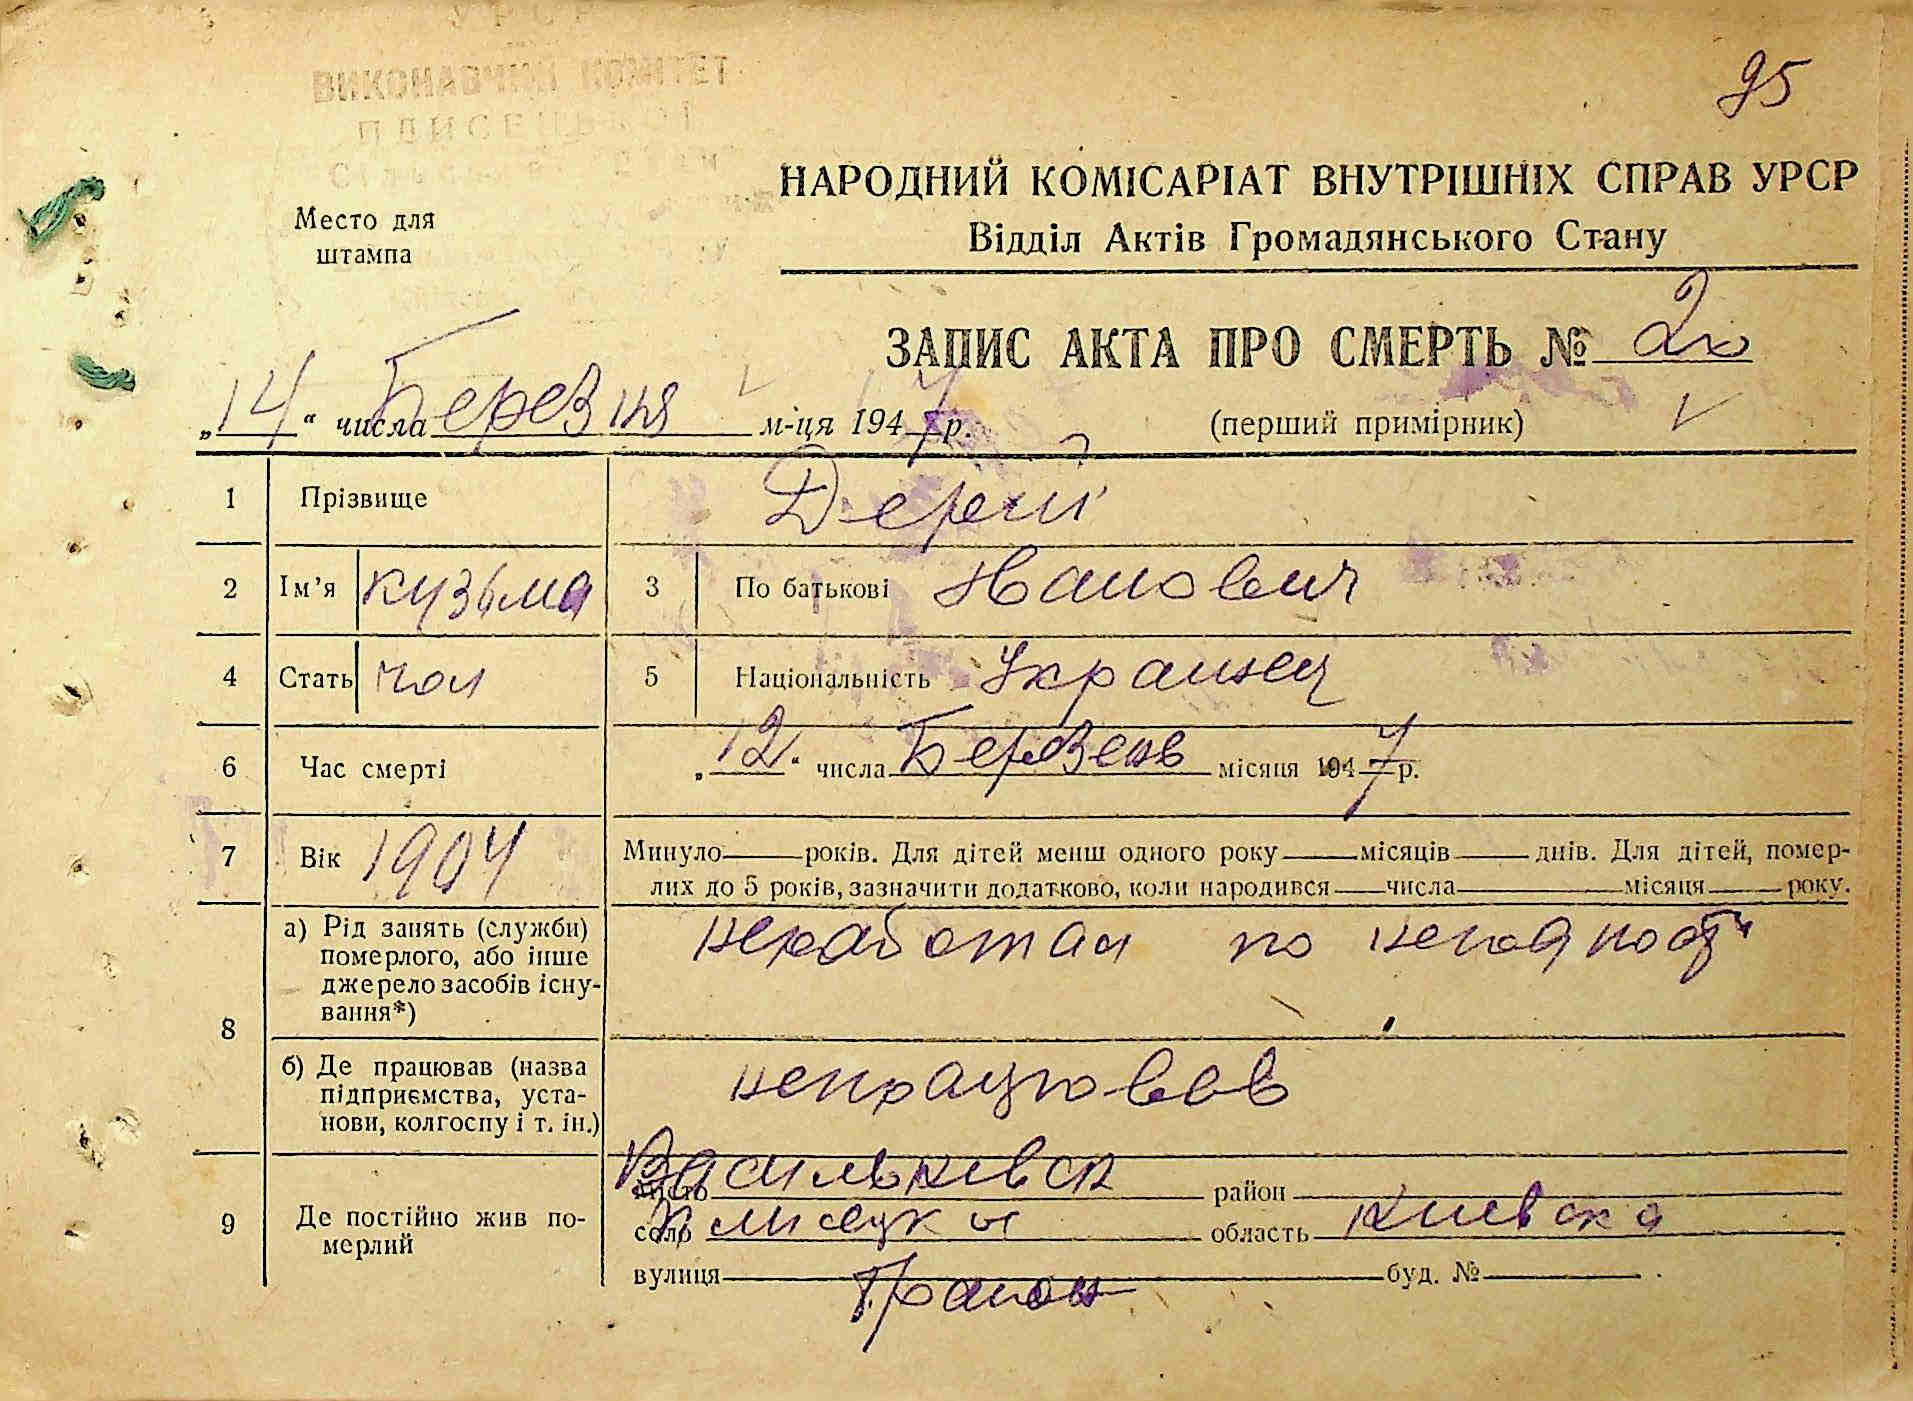 95
ВИКОНАВЧИЙ КОМІТЕТ
Место для
штампа
НАРОДНИЙ КОМІСАРІАТ ВНУТРІШНІХ СПРАВ УРСР
Відділ Актів Громадянського Стану
ЗАПИС АКТА ПРО СМЕРТЬ №
„14“ числа Березня м-ця 1947 р.
(перший примірник)
1 Прізвище
2 Ім’я Кузьма 3 По батькові
4 Стать чол 5 Національність Украинец
6 Час смерті „12“ числа Березень місяця 1947 р.
7 Вік 1904 Минуло — років. Для дітей менш одного року — місяців — днів. Для дітей, помер-
лих до 5 років, зазначити додатково, коли народився — числа — місяця — року.
8 а) Рід занять (служби)
померлого, або інше
джерело засобів існу-
вання*)
неработал по
б) Де працював (назва
підприємства, уста-
нови, колгоспу і т. ін.)
непрацював
9 Де постійно жив по-
мерлий
місто Васильківск район
село область Киевска
вулиця буд. №